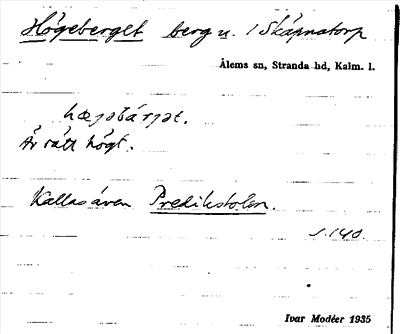 Högeberget berg u. / Skäpnatorp
Ålems sn, Stranda hd, Kalm. l.
hægabärjat.
Är rätt högt.
Kallas även Predikstolen.
s. 140.
Ivar Modéer 1935